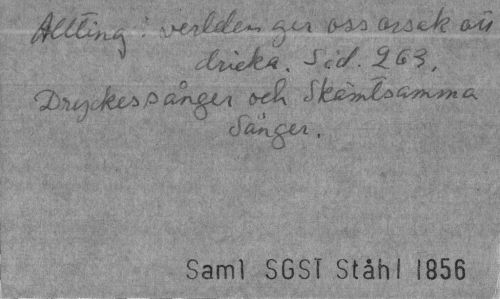 Allting i verlden ger oss orsak att
dricka. Sid. 263.
Dryckessånger och Skämtsamma
Sånger.
Saml SGST Ståhl 1856